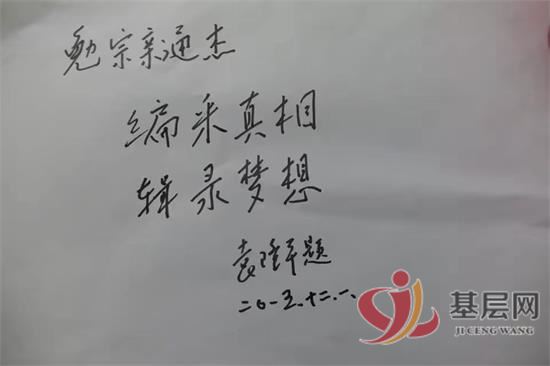 勉宗亲通杰
编采真相
辑录梦想
袁隆平题
二〇一五.十二.一.
基层网
JICENGWANG